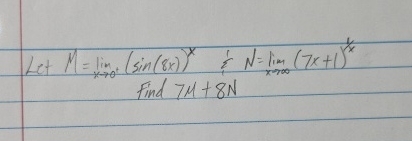 Let M = lim x→0⁺ (sin(8x))^x & N = lim x→∞ (7x+1)^(1/x)
Find 7M + 8N